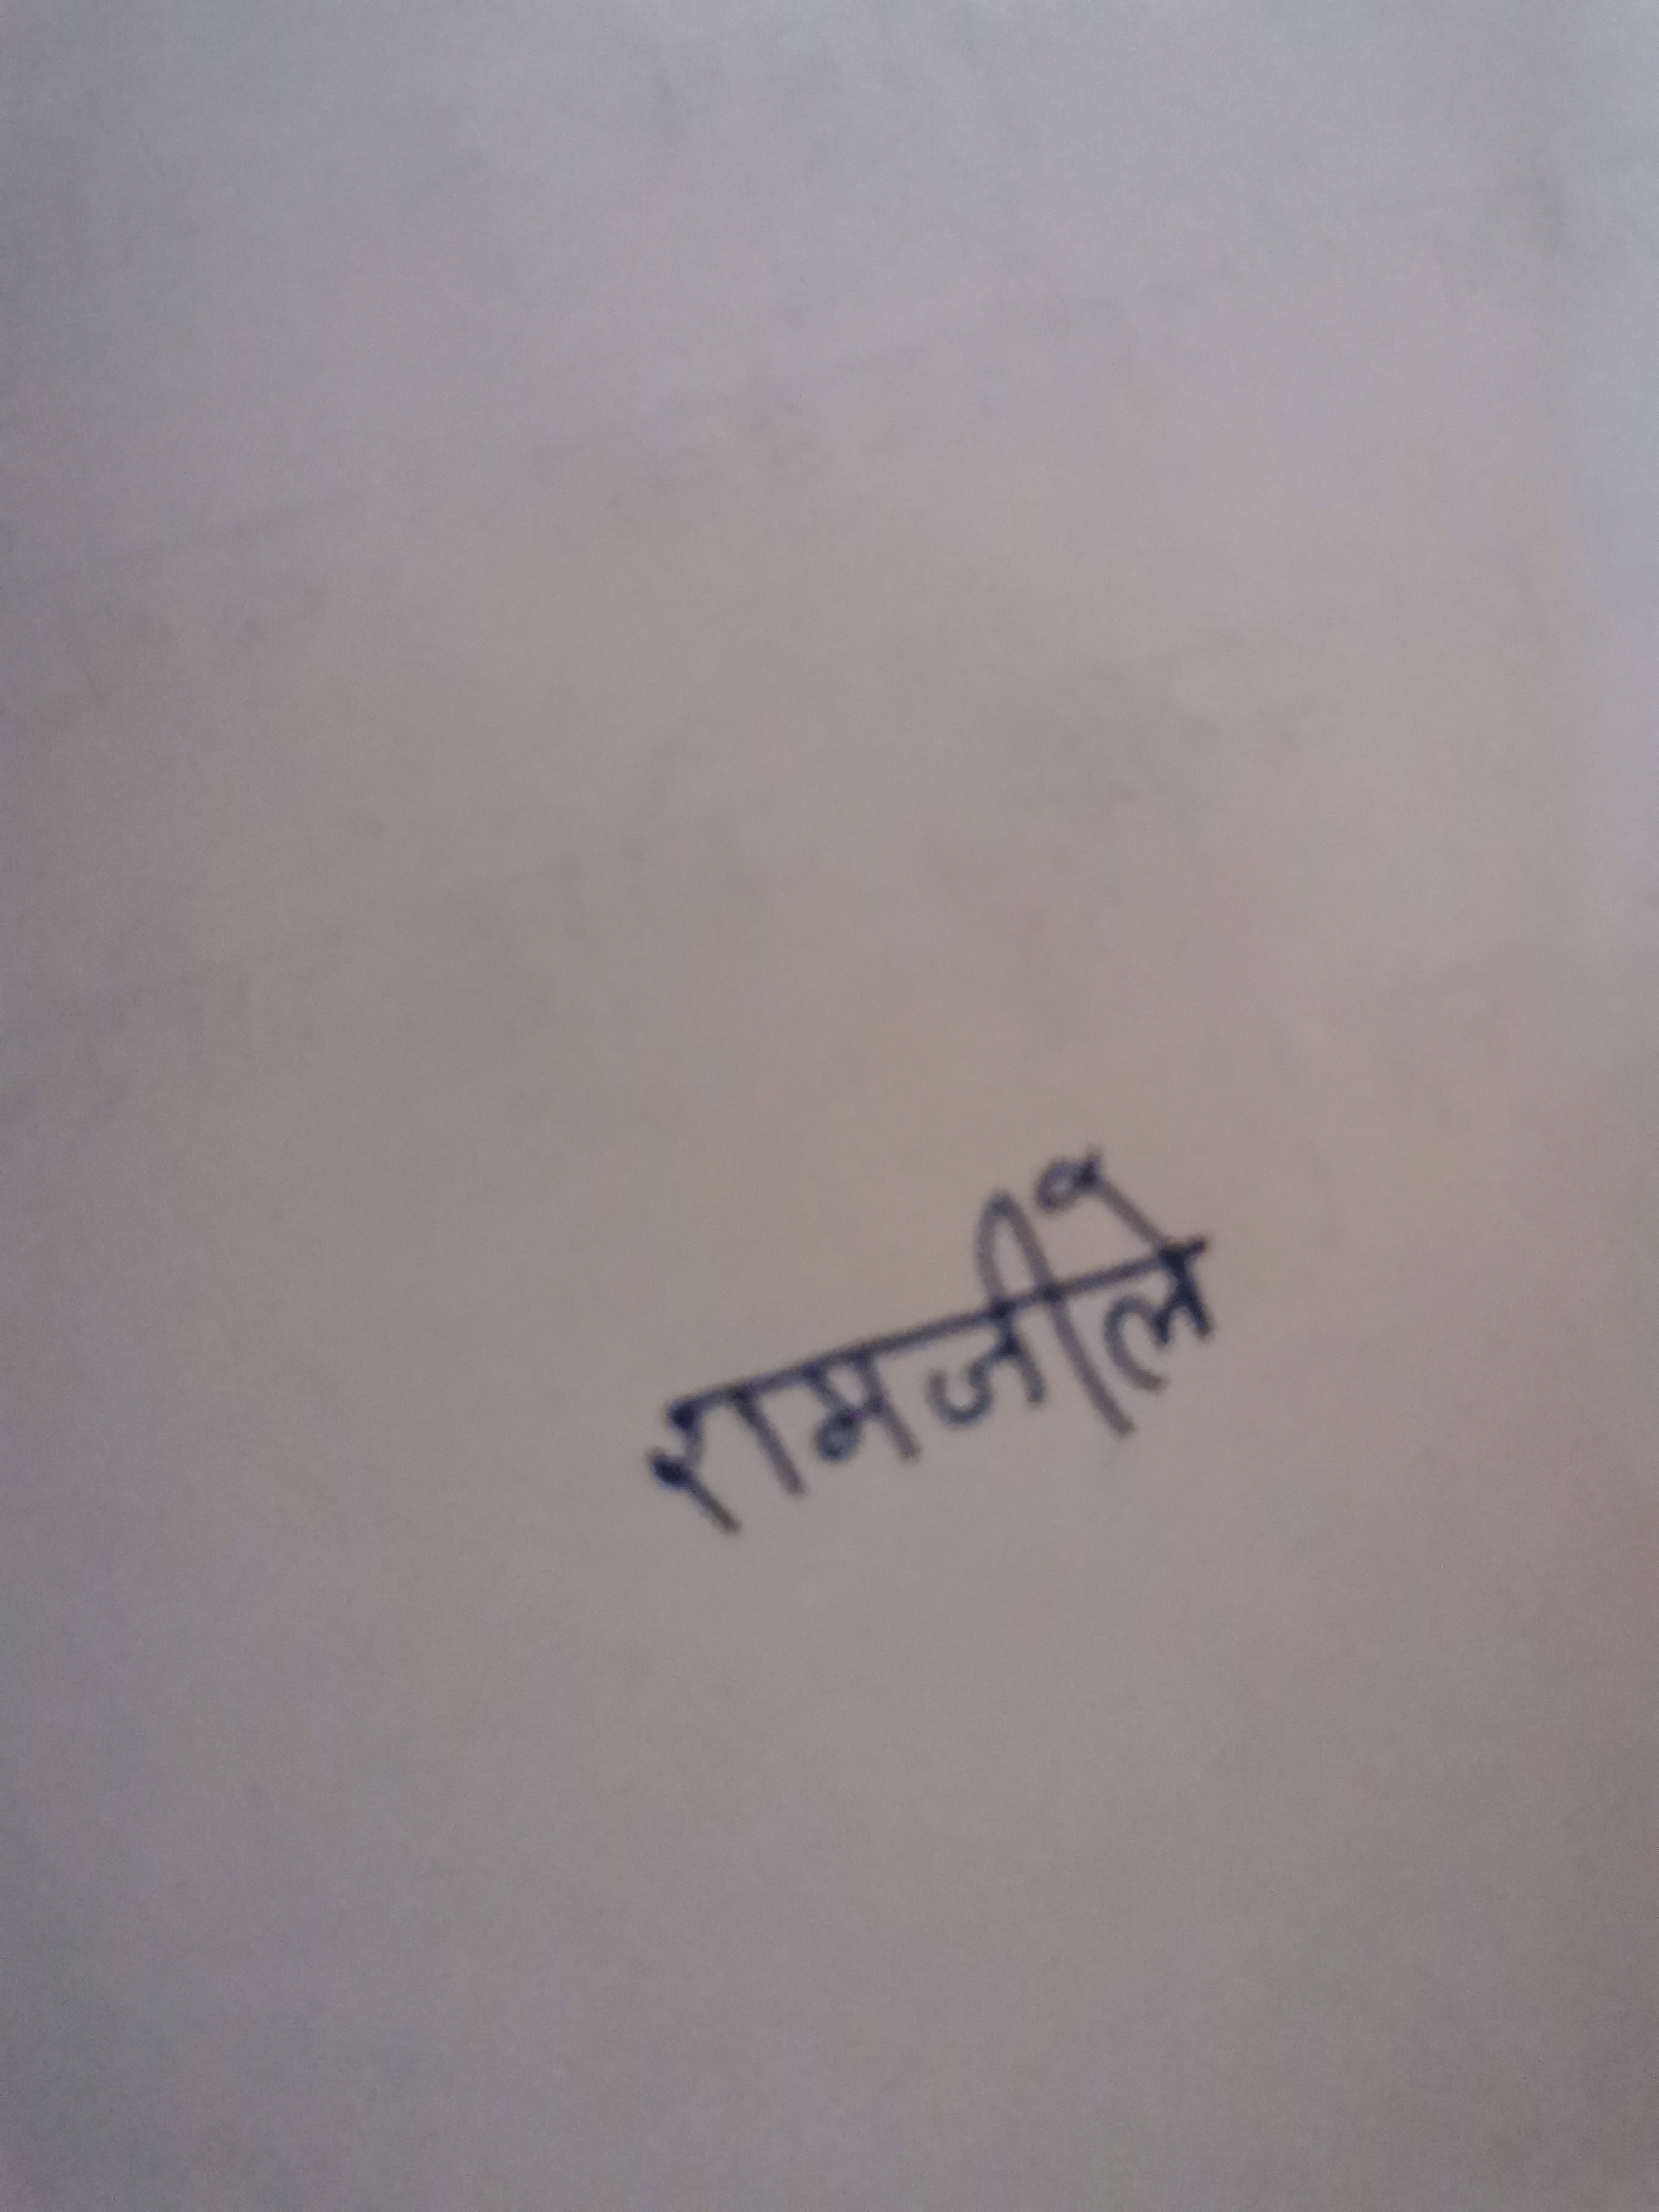 रामजीले